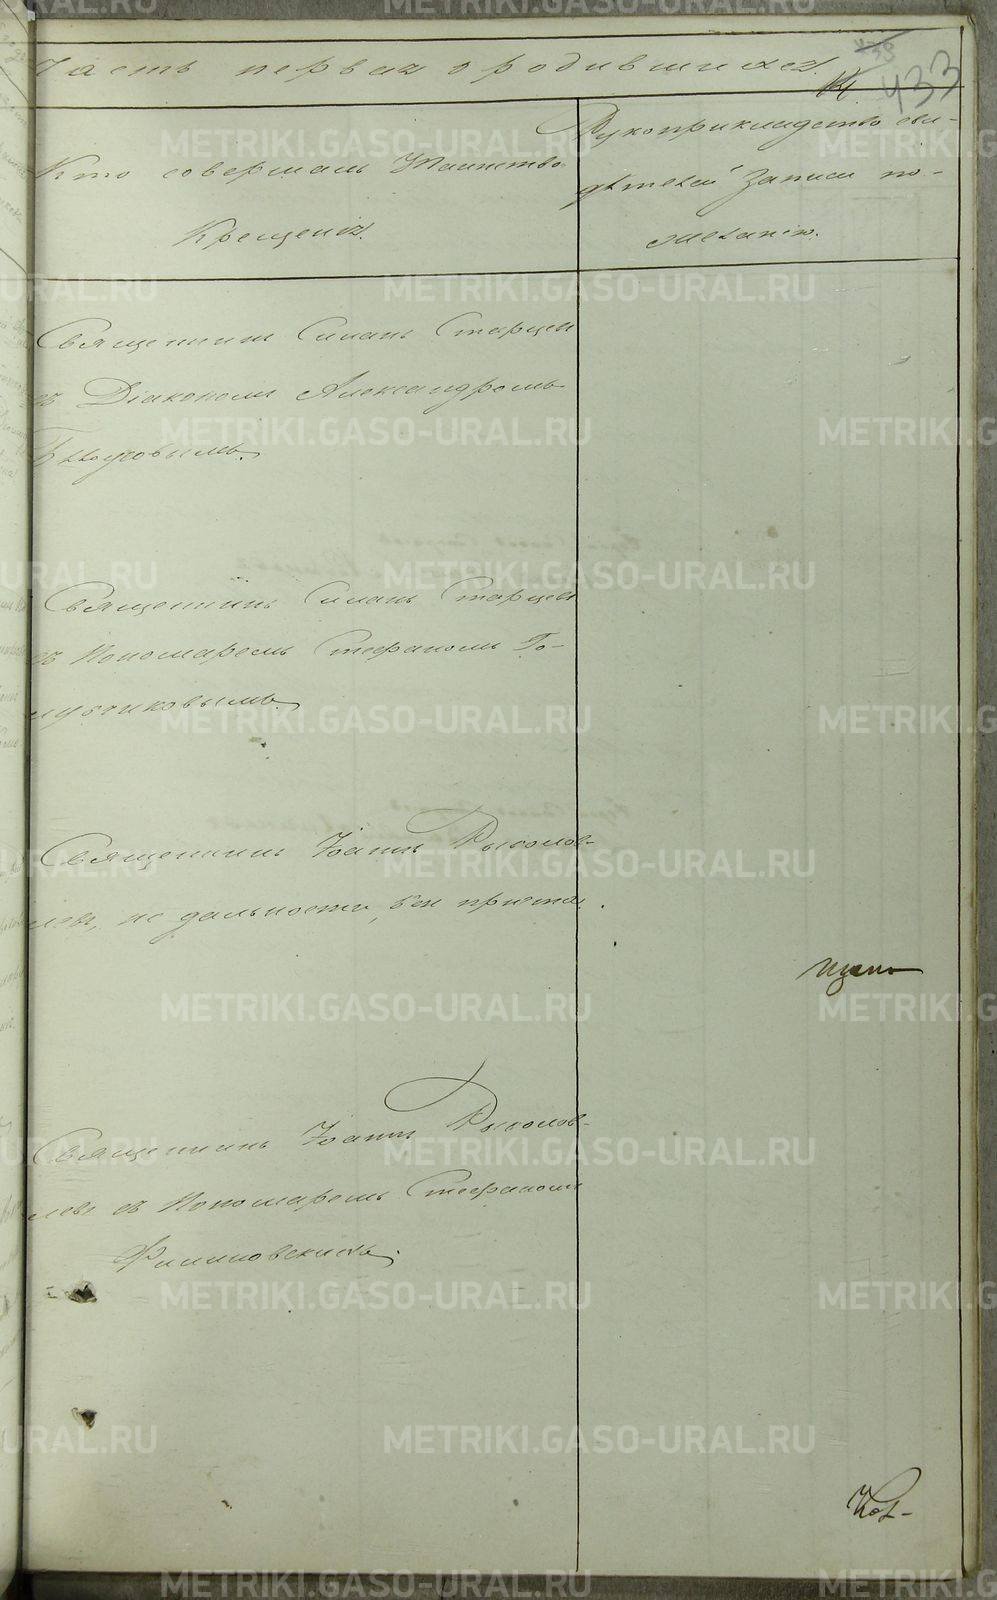 Часть первая о родившихся.
433
Кто совершалъ Таинство
Крещенія.
Рукоприкладство сви-
дѣтелей записи по
желанію.
Священникъ Симонъ Старцевъ
съ Діакономъ Александромъ
Священникъ Симонъ Старцевъ
съ Пономаремъ Стефаномъ Го-
лубчиковымъ.
Священникъ Іоаннъ
по дальности, безъ причта.
Священникъ Іоаннъ
съ Пономаремъ Стефаномъ
Филиповскимъ.
METRIKI.GASO-URAL.RU